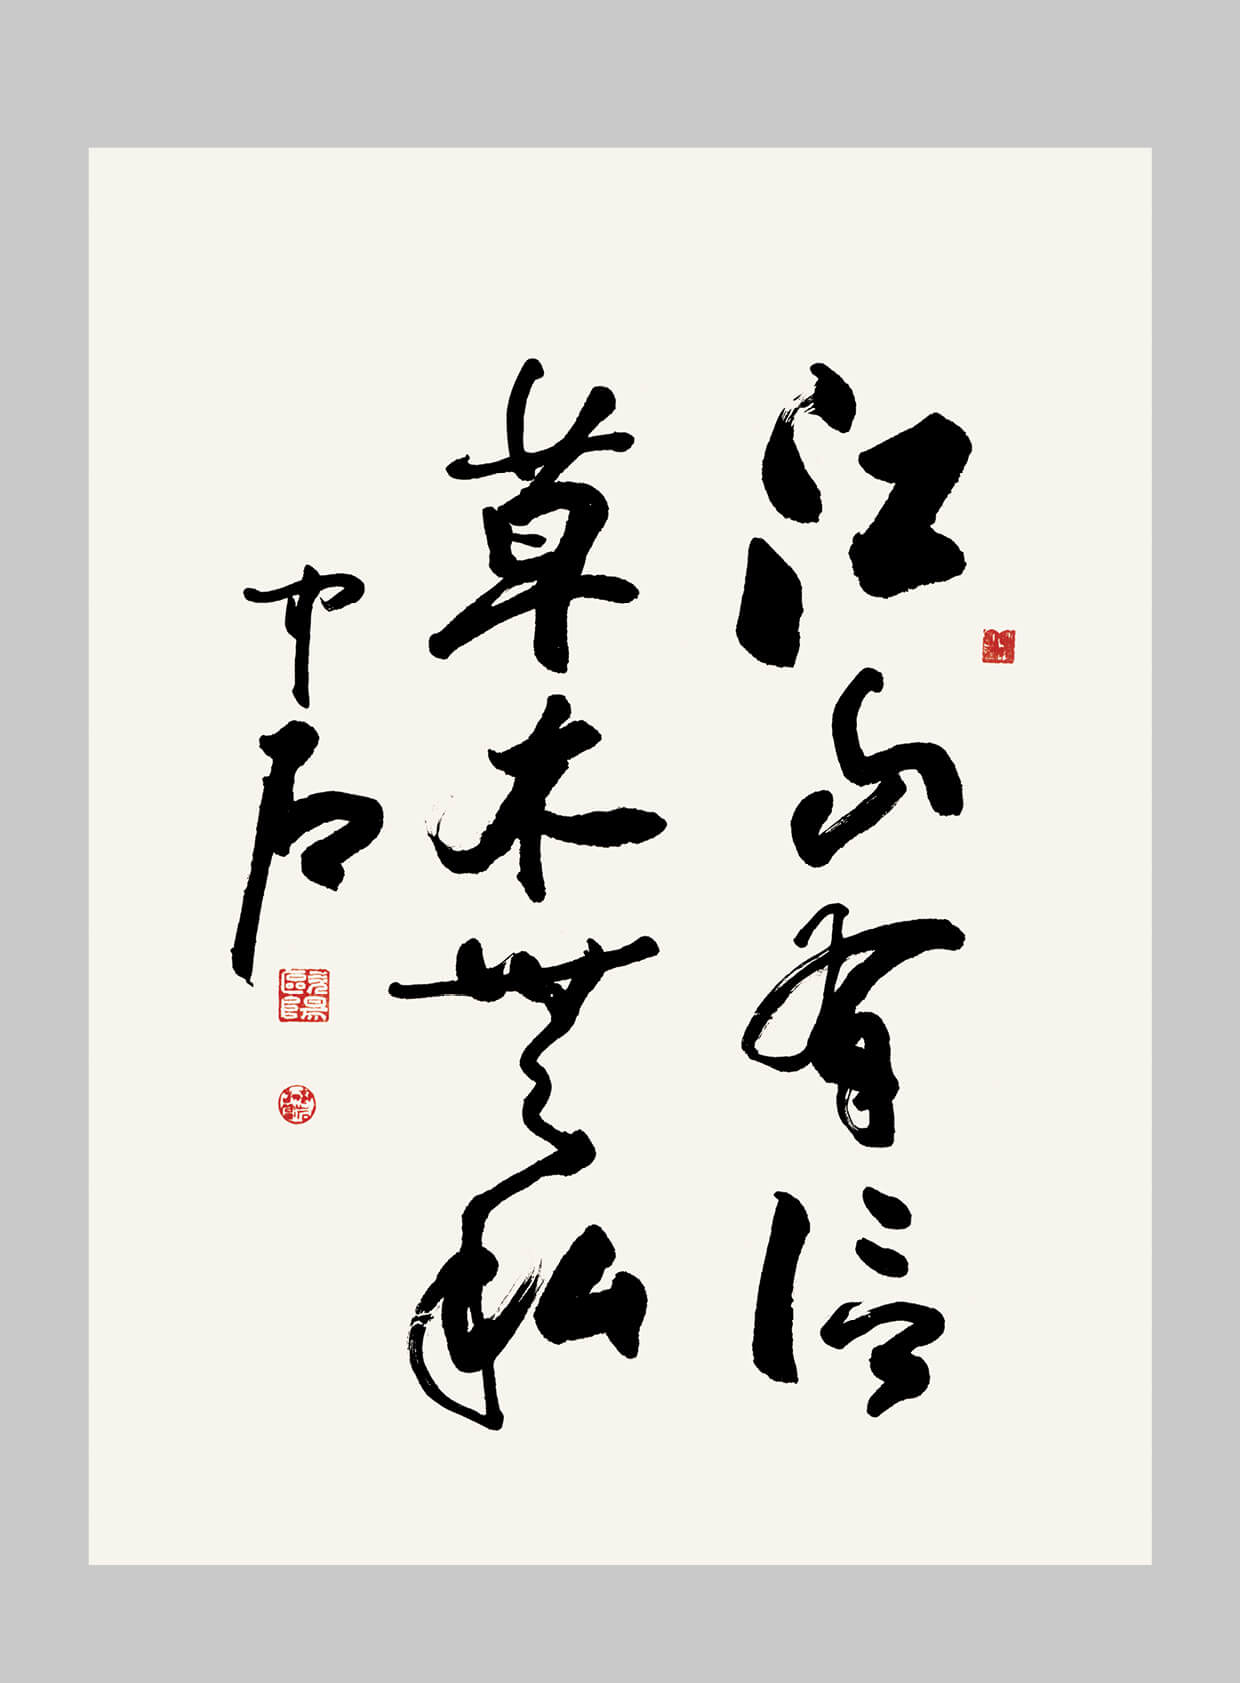 江山有信
草木無私
中石